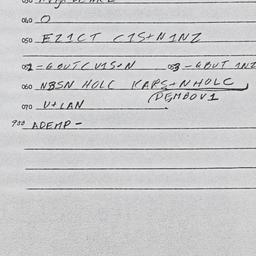 040 O
050 EZICT CIS+NINZ
052=GBUTCUIS+N 053-GBUT INZ
060 NBSN HOLC KAPS+NHOLC
(DEMBOV1
070 U+LAN
900 ADEMP-